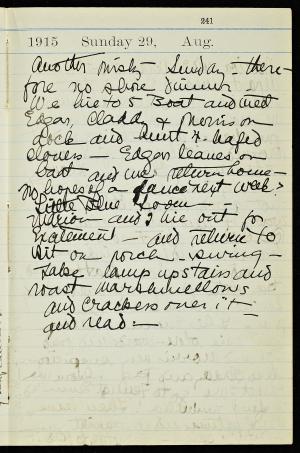 241
1915 Sunday 29, Aug.
Another misty Sunday - there-
fore no shore dinner
We hie to 5 Boat and meet
Edgar, Claddy & Morris on
dock and hunt 4-leafed
clovers - Edgar leaves on
boat and we return home -
No hopes of a dance next week?
Little Blue Room -
Marion and I hie out for
excitement - and return to
sit on porch swing -
Take lamp upstairs and
roast marshmellows
and crackers over it
and read -